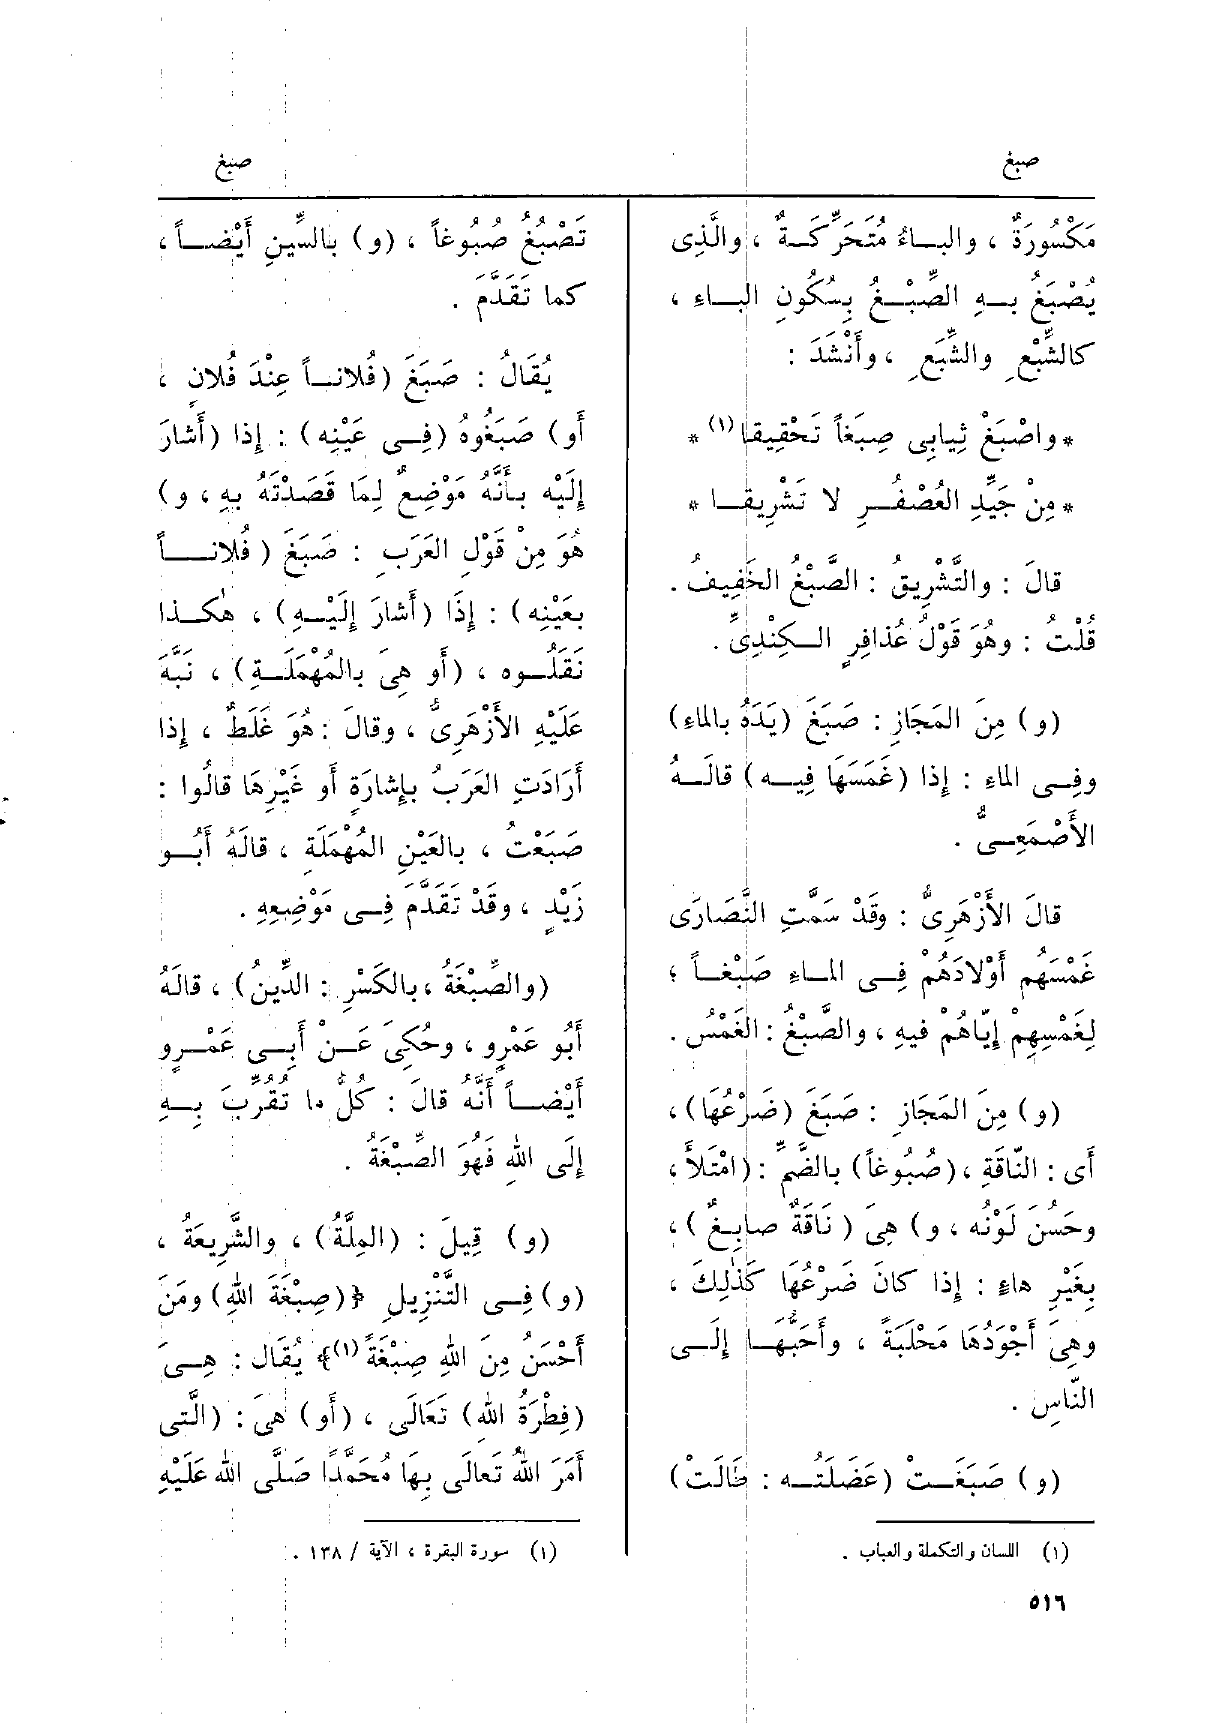 صبغ
صبغ
مَكْسُورَةٌ ، والبــاءُ مُتَحَرِّكَــةٌ ، والَّذِى
يُصْبَغُ بــهِ الصِّبْــغُ بِسُكُونِ البــاءِ ،
كالشِّبْعِ والشِّبَعِ ، وأَنْشَدَ :
* واصْبَغْ ثِيابِى صِبَغاً تَحْقِيقا (١) *
* مِنْ جَيِّدِ العُصْفُــرِ لا تَشْرِيقــا *
قالَ : والتَّشْرِيقُ : الصَّبْغُ الخَفِيفُ .
قُلْتُ : وهُوَ قَوْلُ عُذافِرٍ الــكِنْدِىِّ .
(و) مِنَ المَجَازِ : صَبَغَ (يَدَهُ بالماءِ)
وفِــى الماءِ : إذا (غَمَسَهَا فِيــه) قالَــهُ
الأَصْمَعِــىُّ .
قالَ الأَزْهَرِىُّ : وقَدْ سَمَّتِ النَّصَارَى
غَمْسَهُم أَوْلادَهُمْ فِــى المــاءِ صَبْغــاً ؛
لِغَمْسِهِمْ إيّاهُمْ فيهِ ، والصَّبْغُ : الغَمْسُ .
(و) مِنَ المَجَازِ : صَبَغَ (ضَرْعُهَا) ،
أَى : النّاقَةِ ، (صُبُوغاً) بالضَّمِّ : (امْتَلأَ ،
وحَسُنَ لَوْنُه ، و) هِىَ (نَاقَةٌ صابِغٌ) ،
بِغَيْرِ هاءٍ : إذا كانَ ضَرْعُهَا كَذٰلِكَ ،
وهِىَ أَجْوَدُهَا مَحْلَبَةً ، وأَحَبُّهَــا إلَــى
النّاسِ .
(و) صَبَغَــتْ (عَضَلَتُــه : طَالَتْ)
(١) اللسان والتكملة والعباب .
٥١٦
تَصْبُغُ صُبُوغاً ، (و) بالسِّينِ أَيْضــاً ،
كما تَقَدَّمَ .
يُقَالُ : صَبَغَ (فُلانــاً عِنْدَ فُلانٍ ،
أَو) صَبَغُوهُ (فِــى عَيْنِه) : إذا (أَشارَ
إلَيْه بــأَنَّهُ مَوْضِعٌ لِمَا قَصَدْتَهُ بهِ ، و)
هُوَ مِنْ قَوْلِ العَرَبِ : صَبَغَ (فُلانــــاً
بعَيْنِه) : إذَا (أَشارَ إلَيْــهِ) ، هٰكــذا
نَقَلُــوه ، (أَو هِىَ بالمُهْمَلَــةِ) ، نَبَّهَ
عَلَيْهِ الأَزْهَرِىُّ ، وقالَ : هُوَ غَلَطٌ ، إذا
أَرَادَتِ العَرَبُ بإشارَةٍ أو غَيْرِهَا قالُوا :
صَبَعْتُ ، بالعَيْنِ المُهْمَلَةِ ، قالَهُ أَبُــو
زَيْدٍ ، وقَدْ تَقَدَّمَ فِــى مَوْضِعِهِ .
(والصِّبْغَةُ ، بالكَسْرِ : الدِّينُ) ، قالَهُ
أَبُو عَمْرٍو ، وحُكِىَ عَــنْ أَبِــى عَمْــرٍو
أَيْضــاً أَنَّهُ قالَ : كُلُّ ما تُقُرِّبَ بِــهِ
إلَى اللهِ فَهُوَ الصِّبْغَةُ .
(و) قِيلَ : (المِلَّةُ) ، والشَّرِيعَةُ ،
(و) فِــى التَّنْزِيلِ ﴿(صِبْغَةَ اللهِ) ومَنْ
أَحْسَنُ مِنَ اللهِ صِبْغَةً (١)﴾ يُقَال : هِــىَ
(فِطْرَةُ اللهِ) تَعَالَى ، (أَو) هِىَ : (الَّتِى
أَمَرَ اللهُ تَعالَى بِهَا مُحَمَّدًا صَلَّى الله عَلَيْهِ
(١) سورة البقرة ، الآية / ١٣٨ .